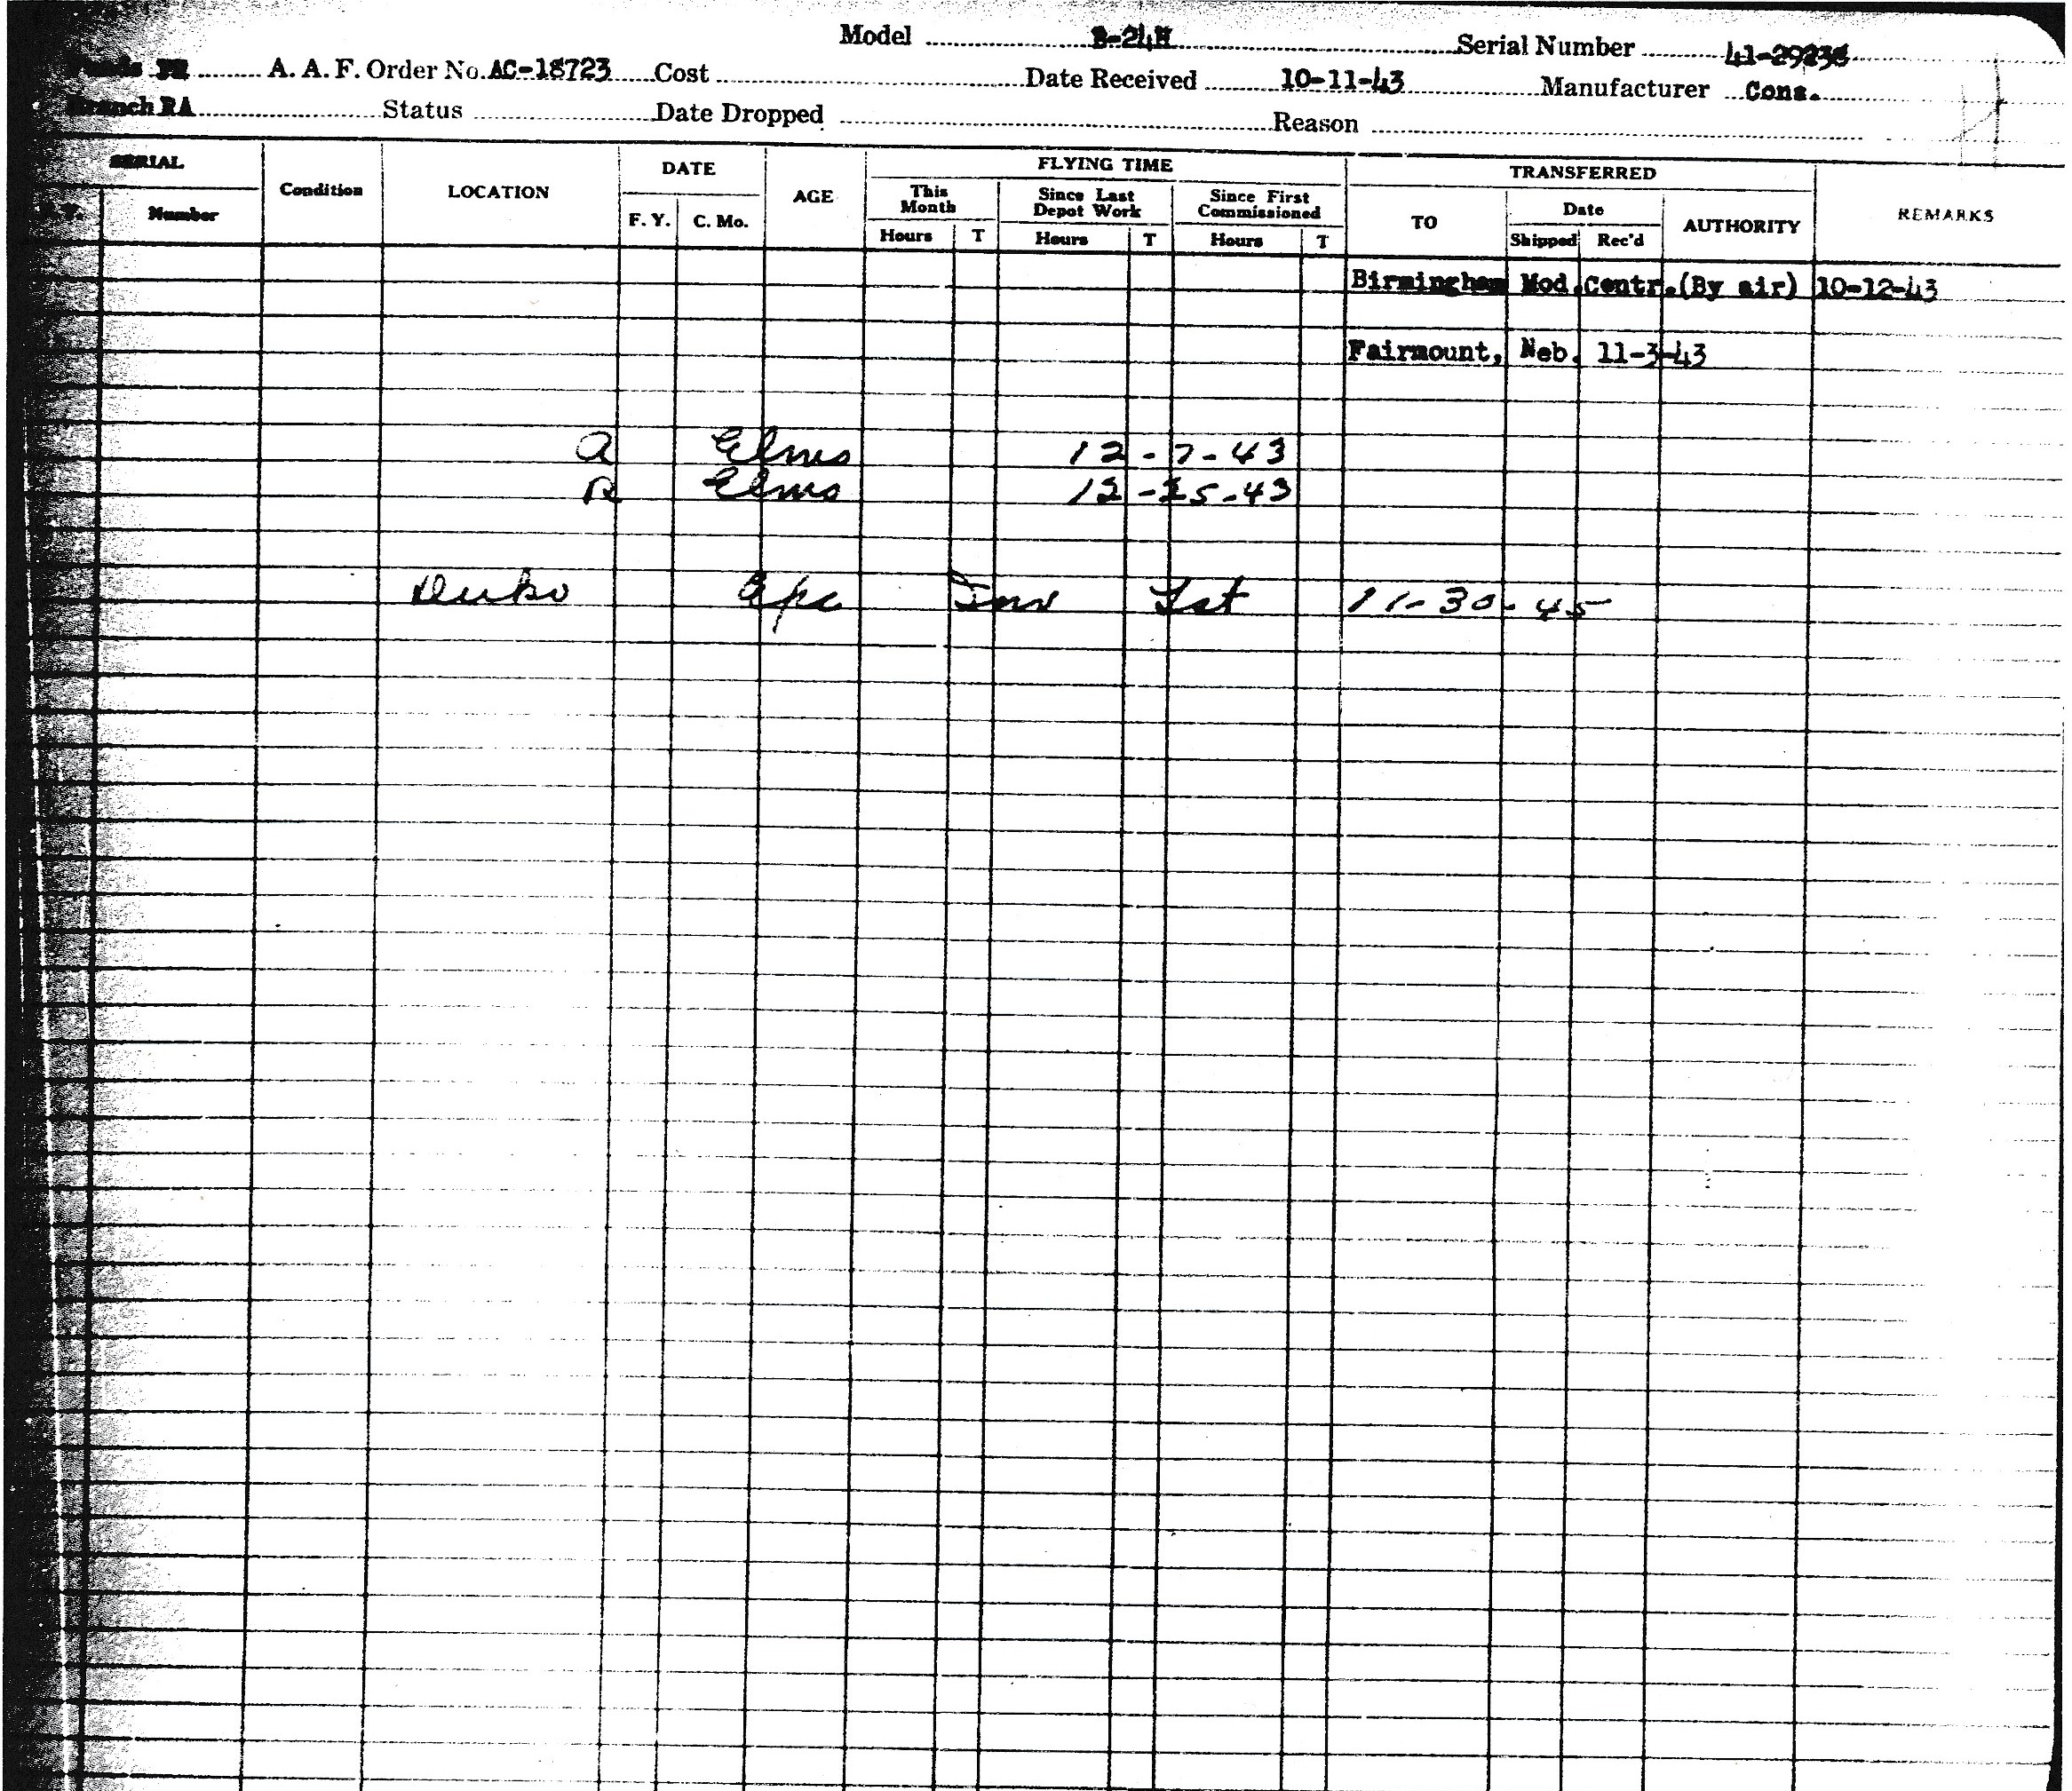 Model B-24H Serial Number 41-29238
A. A. F. Order No. AC-18723 Cost Date Received 10-11-43 Manufacturer Cons.
Branch RA Status Date Dropped Reason
SERIAL Condition LOCATION DATE AGE FLYING TIME TRANSFERRED REMARKS
This Month Since Last Depot Work Since First Commissioned
Number F. Y. C. Mo. TO Date AUTHORITY
Hours T Hours T Hours T Shipped Rec'd
Birmingham Mod.Centr.(By air) 10-12-43
Fairmount, Neb. 11-3-43
A Elms 12-7-43
R Elms 12-15-43
11-30-45